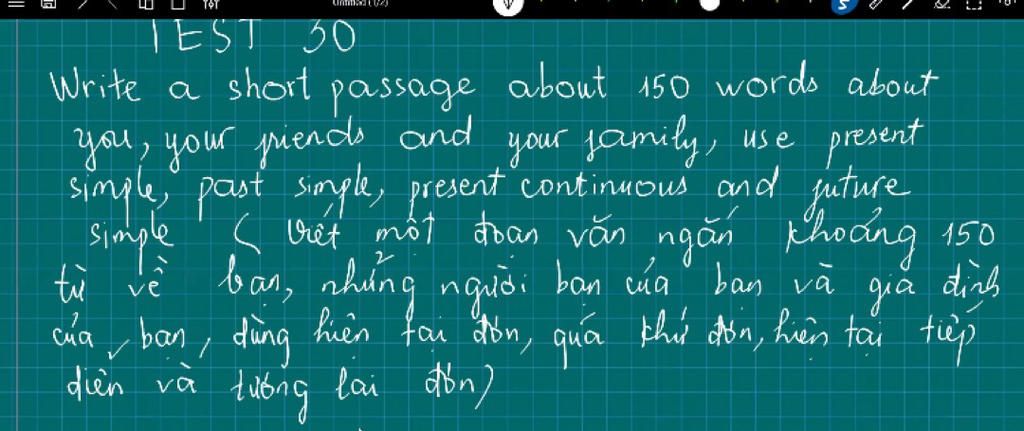 Untitled (1/2)
TEST 30
Write a short passage about 150 words about
you, your friends and your family, use present
simple, past simple, present continuous and future
simple ( Viết một đoạn văn ngắn khoảng 150
từ về bạn, những người bạn của bạn và gia đình
của bạn, dùng hiện tại đơn, quá khứ đơn, hiện tại tiếp
diễn và tương lai đơn)